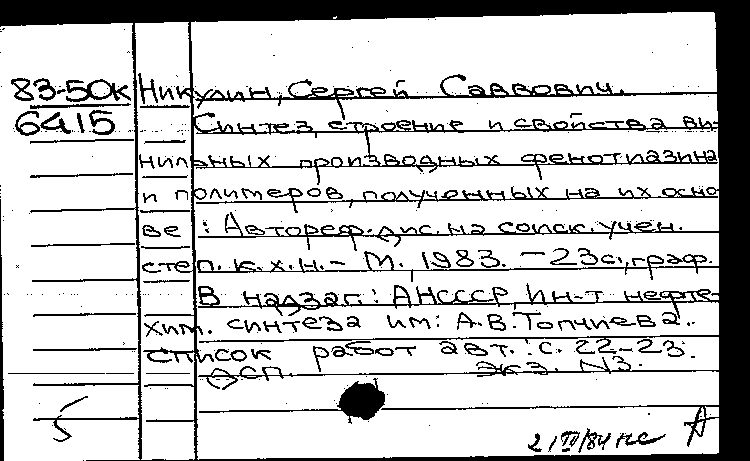 83-50к Никулин, Сергей Саввович.
6415 Синтез, строение и свойства ви-
нильных производных фенотиазина
и полимеров, полученных на их осно
ве : Автореф. дис. на соиск. учен.
степ. к.х.н. – М., 1983. – 23с., граф.
В надзаг: АН СССР, Ин-т нефте-
хим. синтеза им: А.В. Топчиева.
Список работ авт.: с. 22-23.
ДСП. экз. N3.
5 А